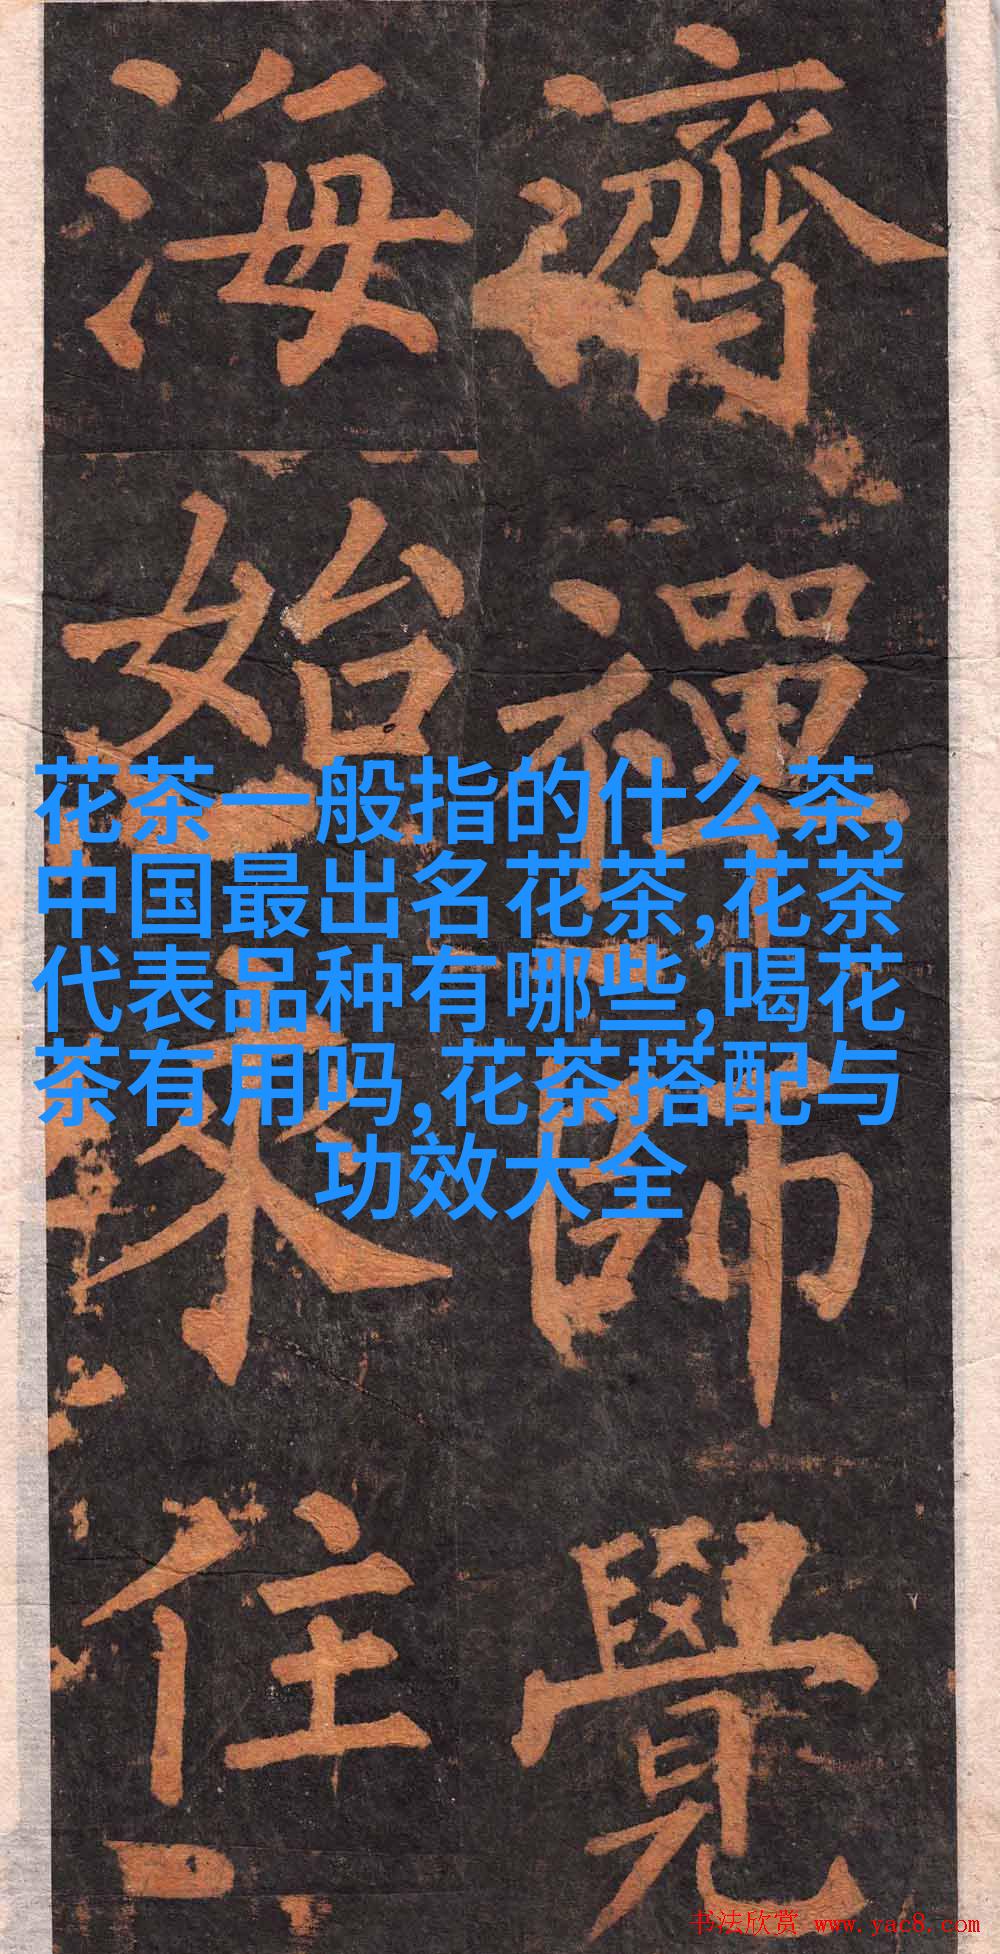 濟禪師覺
海始来住
花茶一般指的什么茶,
中国最出名花茶,花茶
代表品种有哪些,喝花
茶有用吗,花茶搭配与
功效大全
书法欣赏 www.yac8.com